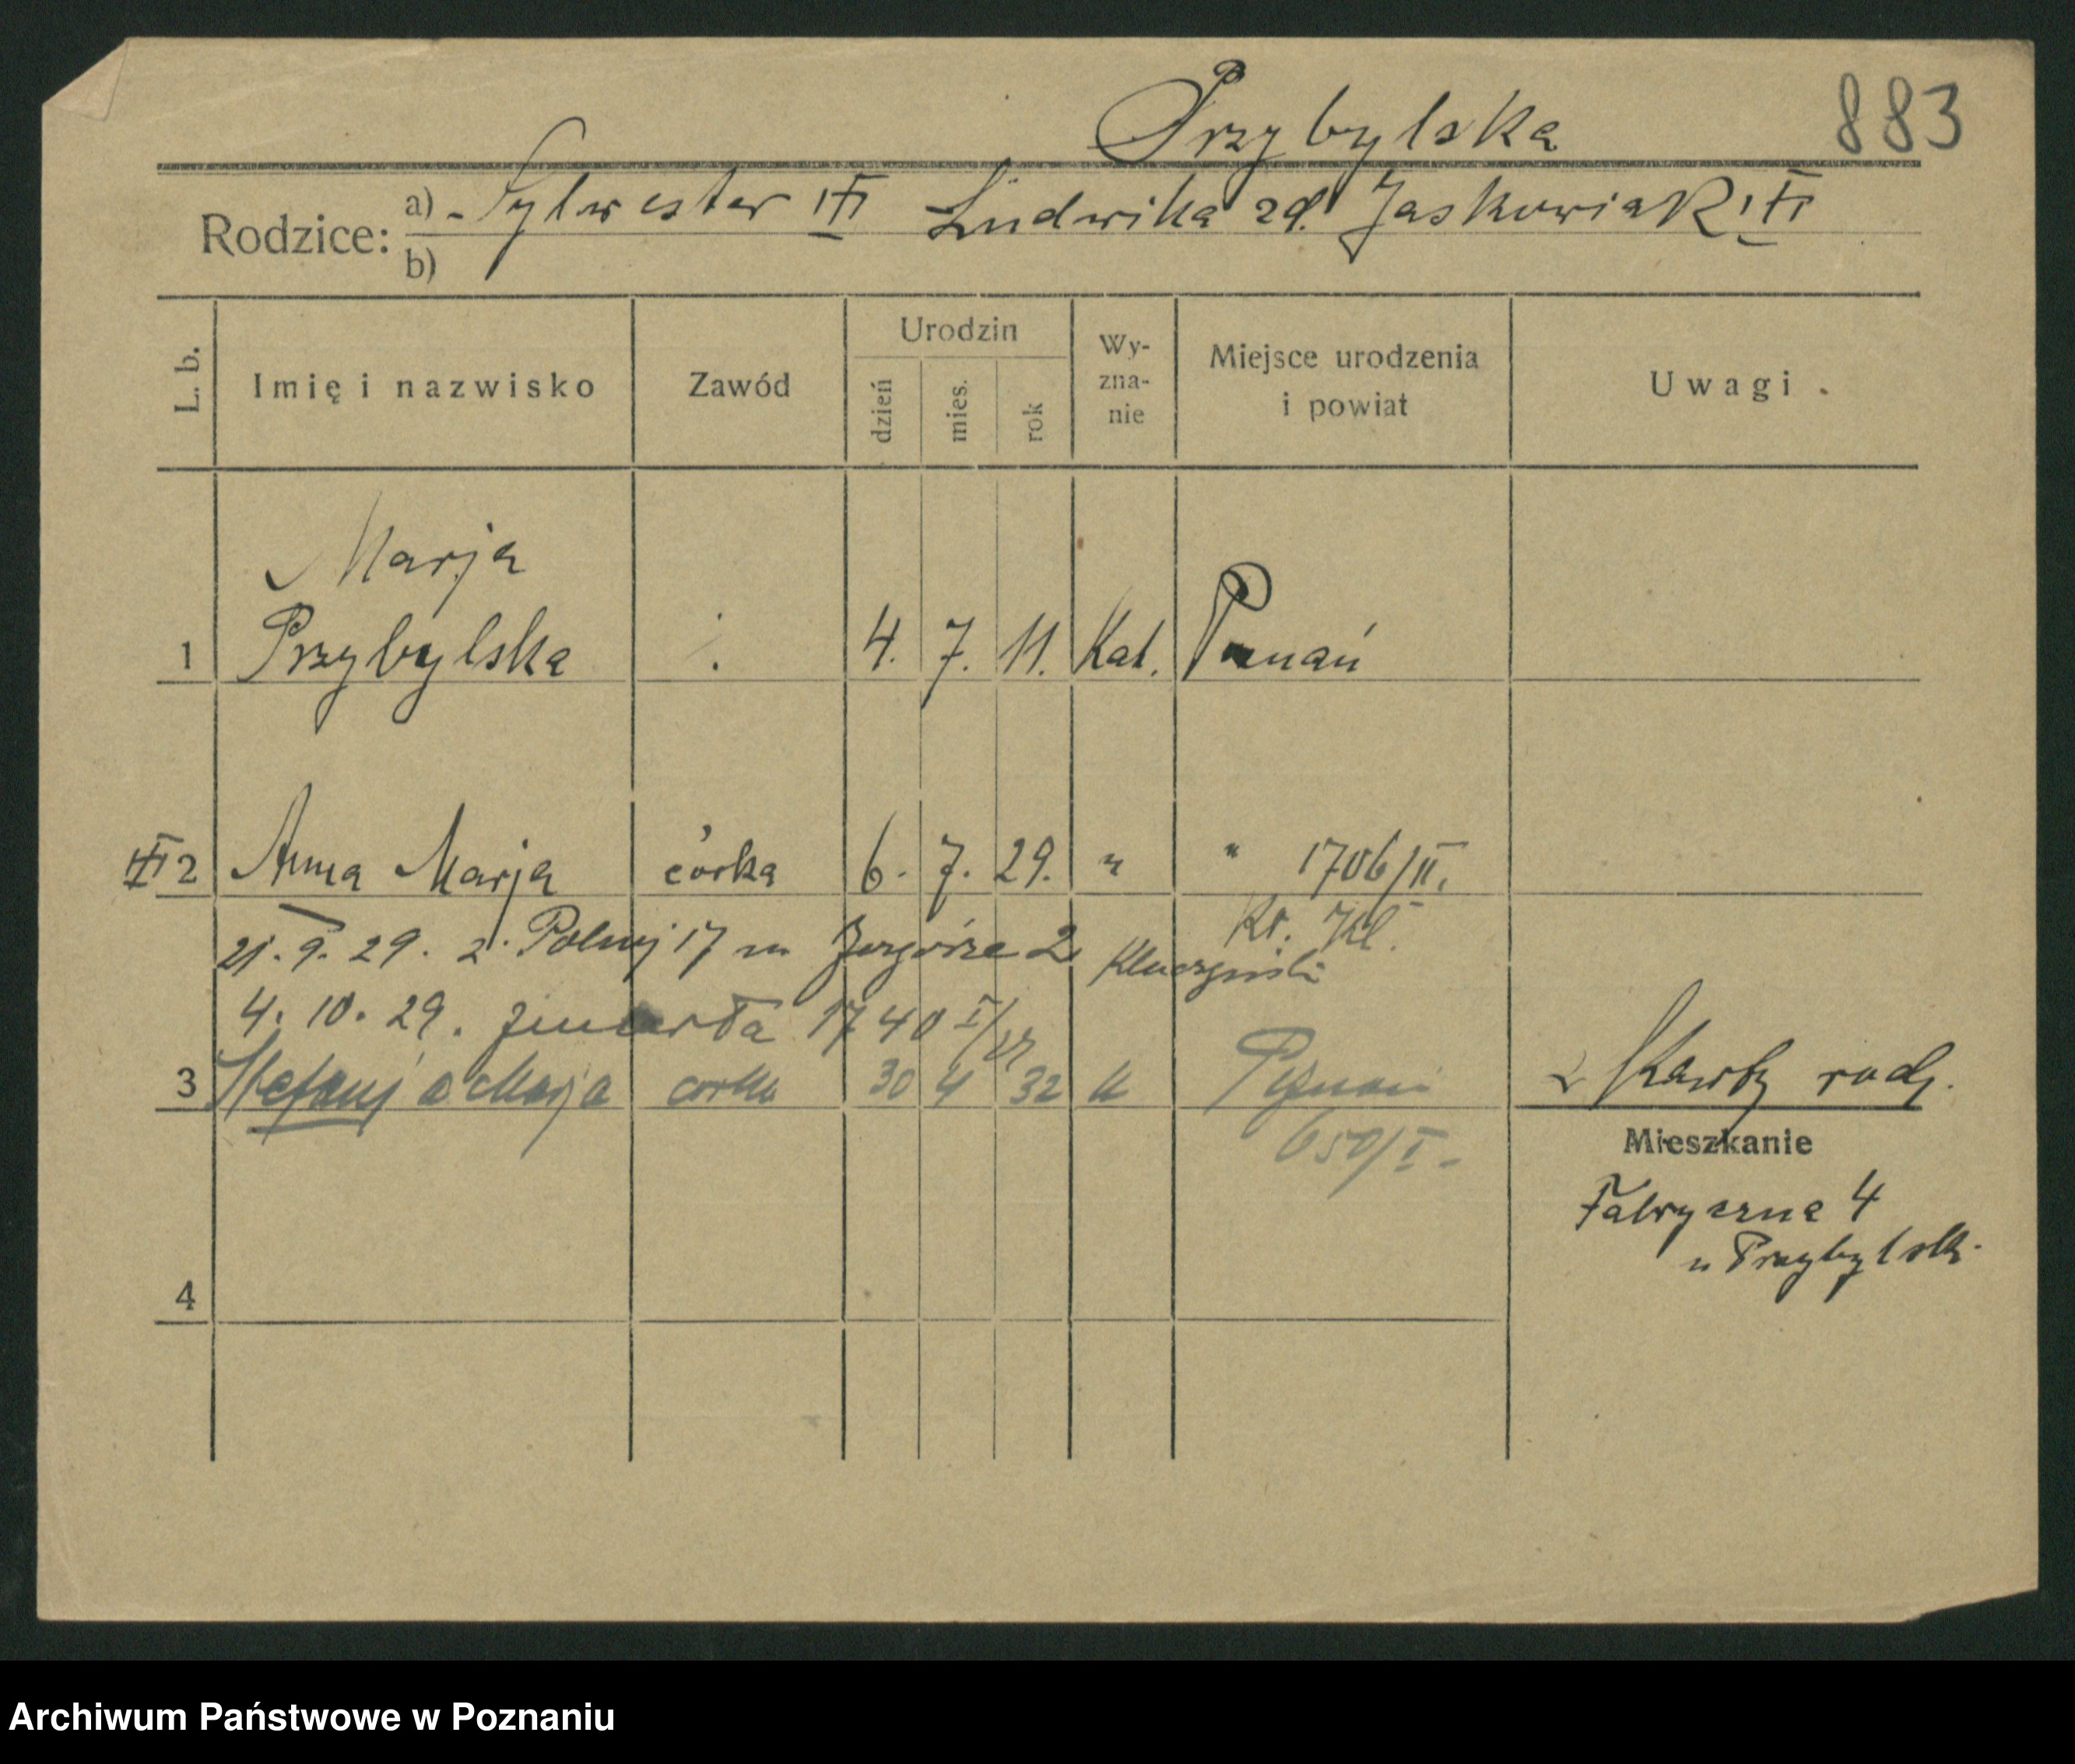 Przybylska 883
Rodzice: a) Sylwester Ludwika zd. Jaskowiak
b)
L. b. Imię i nazwisko Zawód Urodzin dzień mies. rok Wy-zna-nie Miejsce urodzenia i powiat Uwagi
Marja
1 Przybylska 4. 7. 11. Kat. Poznań
2 Anna Marja córka 6. 7. 29. " " 1706/II.
21. 9. 29. z Polnej 17 Zagórze 2
4. 10. 29. zmarła 1740 I/29
3 Stefanja Marja córka 30 4 32 k Poznań
z Karty rodz.
650/I -
Mieszkanie
Fabryczna 4
u Przybylsk.
4
Archiwum Państwowe w Poznaniu